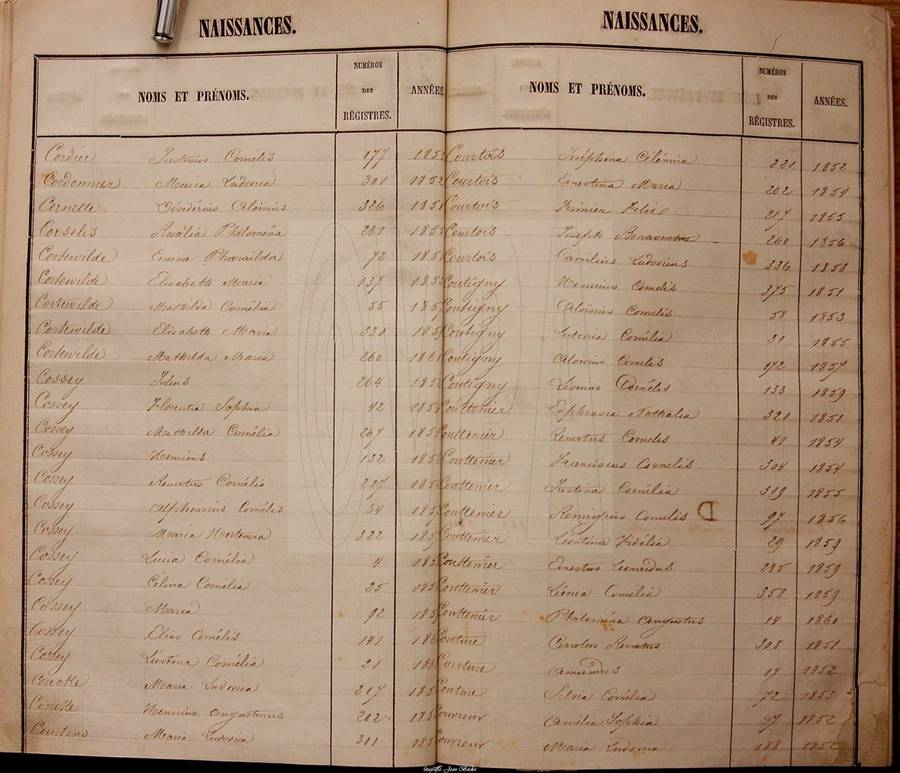 NAISSANCES.
NOMS ET PRÉNOMS. NUMÉROS DES RÉGISTRES. ANNÉES.
Cordier Justinus Cornélis 177 185
Cordonnier Maria Ludovica 301 1852
Cornette Désidérius Aloïsius 326 1851
Corselis Rosalia Philoména 201 185
Cortewilde Emma Pharaïlda 72 185
Cortewilde Elisabeth Maria 137 185
Cortewilde Mathilda Cornélia 55 185
Cortewilde Elisabeth Maria 330 185
Cortewilde Mathilda Maria 260 186
Cossey Julius 264 185
Cossey Florentia Sophia 42 185
Cossey Mathilda Cornélia 267 185
Cossey Henricus 132 185
Cossey Renatus Cornélis 227 185
Cossey Alphonsius Cornélis 34 185
Cossey Maria Hortensia 322 185
Cossey Lucia Cornélia 4 185
Cossey Célina Cornélia 25 185
Cossey Maria 92 185
Cossey Elias Cornélis 141 186
Cossey Léontina Cornélia 21 186
Coucke Maria Ludovica 217 185
Coucke Henricus Augustinus 202 185
Courtens Maria Ludovica 311 185
NAISSANCES.
NOMS ET PRÉNOMS. NUMÉROS DES RÉGISTRES. ANNÉES.
Courtois Joséphina Célérina 221 1852
Courtois Ernestina Maria 202 1854
Courtois Firmien Félix 217 1855
Courtois Joseph Bonaventure 260 1856
Courtois Camilius Ludovicus 336 1858
Coutigny Henricus Cornelis 375 1851
Coutigny Aloïsius Cornelis 58 1853
Coutigny Ludovica Cornélia 31 1855
Coutigny Aloïsius Cornelis 172 1857
Coutigny Cornélis 133 1859
Couttenier Euphrasia Nathalia 321 1851
Couttenier Renatus Cornelis 41 1854
Couttenier Franciscus Cornelis 304 1854
Couttenier Justina Cornélia 319 1855
Couttenier Remigius Cornelis D 97 1856
Couttenier Léontina Fidélia 29 1859
Couttenier Ernestus Leonardus 285 1859
Couttenier Léonia Cornélia 353 1859
Couttenier Philoména Augustus 14 1860
Couture Carolus Renatus 308 1851
Couture Amandus 17 1852
Couture Silvia Cornélia 72 1853
Couvreur Amélia Sophia 7 1852
Couvreur Maria Ludovica 188 1852